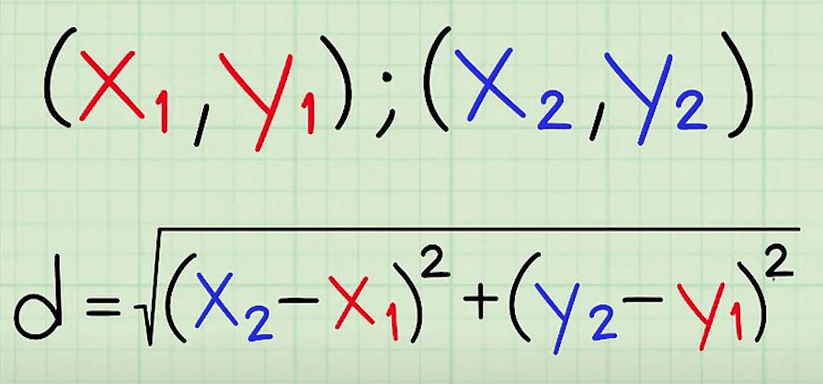 (X₁, Y₁); (X₂, Y₂)
d = √(X₂ − X₁)² + (Y₂ − Y₁)²